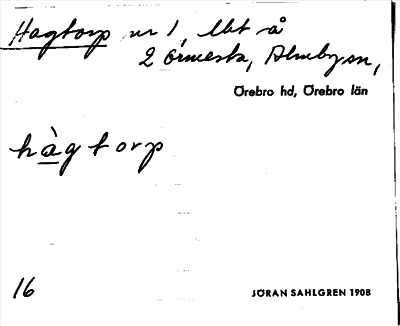 Hagtorp nr 1, lht å
2 Ormesta, Almby sn,
Örebro hd, Örebro län
hàgtorp
16
JÖRAN SAHLGREN 1908